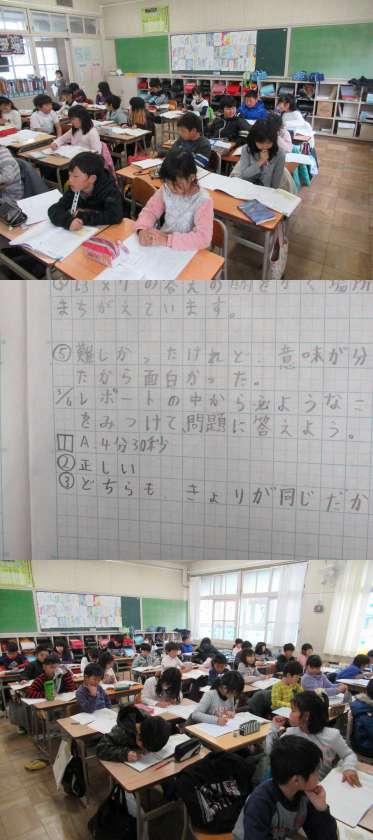 まちがえています。
⑤難しかったけれど、意味が分
だから面白かった。
3/6レポートの中から必ようなこ
をみつけて、問題に答えよう。
1 A.4分30秒
②正しい
③どちらも、きょりが同じだか